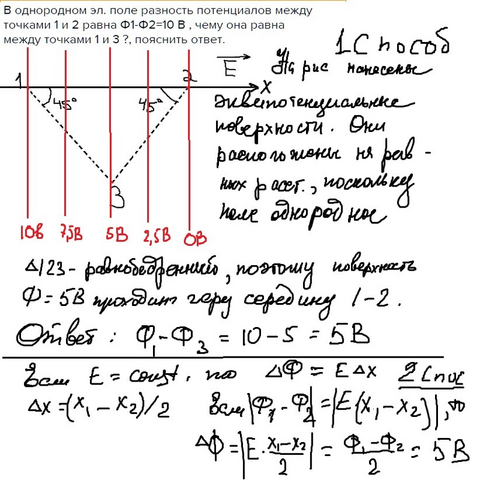 В однородном эл. поле разность потенциалов между
точками 1 и 2 равна Ф1-Ф2=10 В , чему она равна
между точками 1 и 3 ?, пояснить ответ.
1 Способ
E
На рис нанесены
1 2 x
45° 45°
эквипотенциальные
поверхности. Они
расположены на рав-
ных расст., поскольку
поле однородное
3
10В 7,5В 5В 2,5В 0В
Δ123 - равнобедренный, поэтому поверхность
Ф = 5В проходит через середину 1-2.
Ответ: Ф₁-Ф₃ = 10-5 = 5В
Если E = const, то ΔФ = EΔx 2 Спос
Δx = (x₁-x₂)/2 Если |Ф₁-Ф₂| = |E(x₁-x₂)|, то
ΔФ = |E·(x₁-x₂)/2| = (Ф₁-Ф₂)/2 = 5В